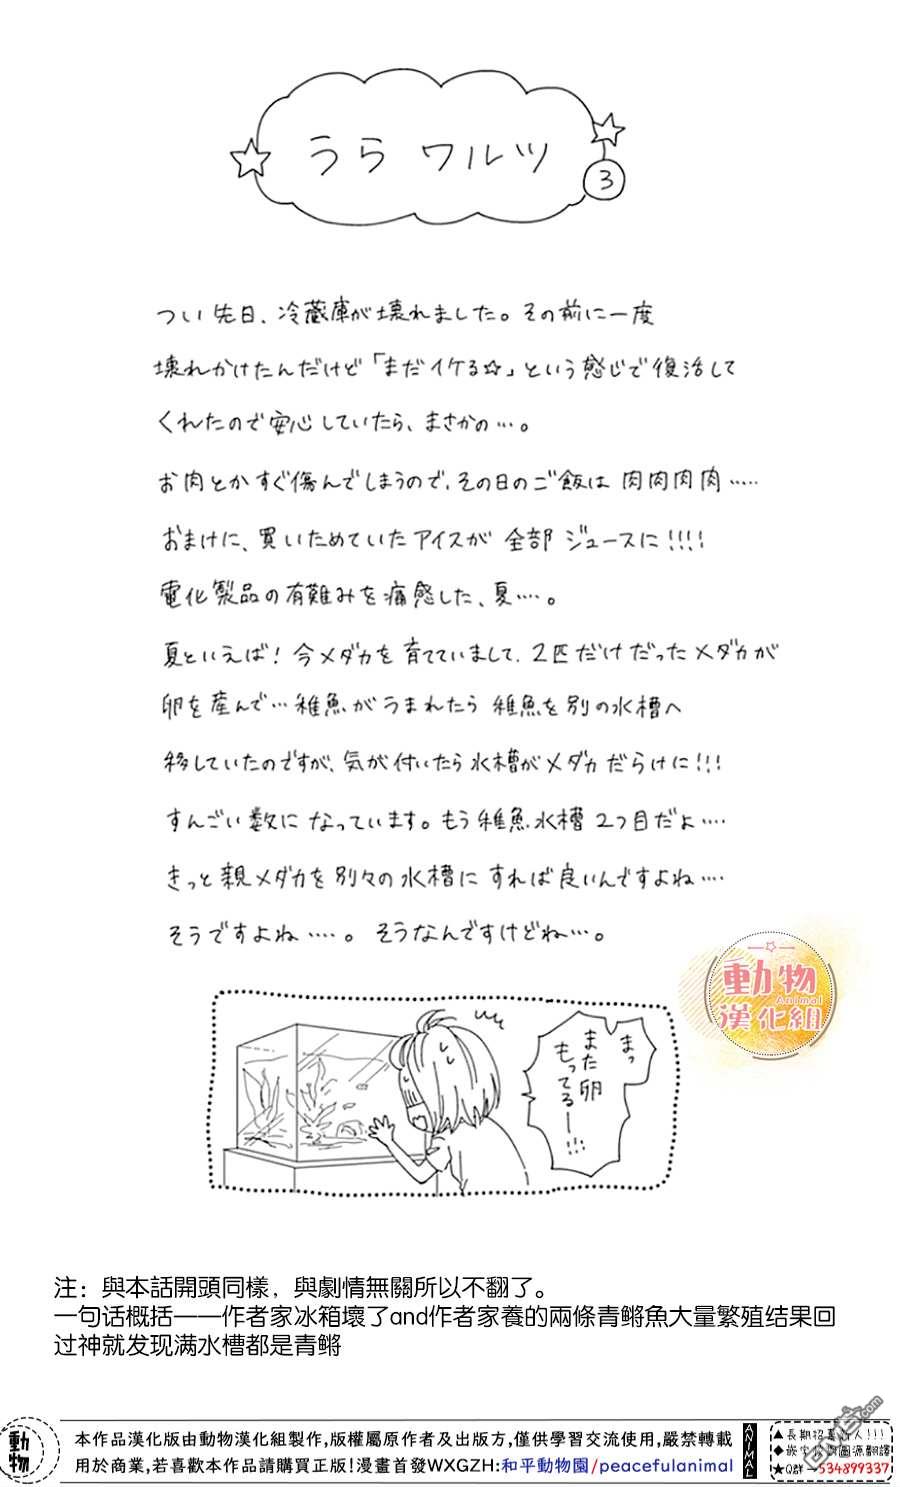 うら ワルツ
3
つい先日、冷蔵庫が壊れました。その前に一度
壊れかけたんだけど「まだイケる☆」という感じで復活して
くれたので安心していたら、まさかの…。
お肉とかすぐ傷んでしまうので、その日のご飯は肉肉肉肉……
おまけに、買いためていたアイスが全部ジュースに!!!!
電化製品の有難みを痛感した、夏‥‥。
夏といえば!今メダカを育てていまして、2匹だけだったメダカが
卵を産んで…稚魚がうまれたら稚魚を別の水槽へ
移していたのですが、気が付いたら水槽がメダカだらけに!!!
すんごい数になっています。もう稚魚水槽2つ目だよ‥‥
きっと親メダカを別々の水槽にすれば良いんですよね‥‥
そうですよね‥‥。そうなんですけどね…。
まっ
また卵
もってるー!!!
動物
Animal
漢化組
注：與本話開頭同樣，與劇情無關所以不翻了。
一句话概括——作者家冰箱壞了and作者家養的兩條青鳉魚大量繁殖结果回
过神就发现满水槽都是青鳉
動物
本作品漢化版由動物漢化組製作,版權屬原作者及出版方,僅供學習交流使用,嚴禁轉載
用於商業,若喜歡本作品請購買正版!漫畫首發WXGZH:和平動物園/peacefulanimal
ANIMAL
▲長期招募新人!!!
★Q群→534899337